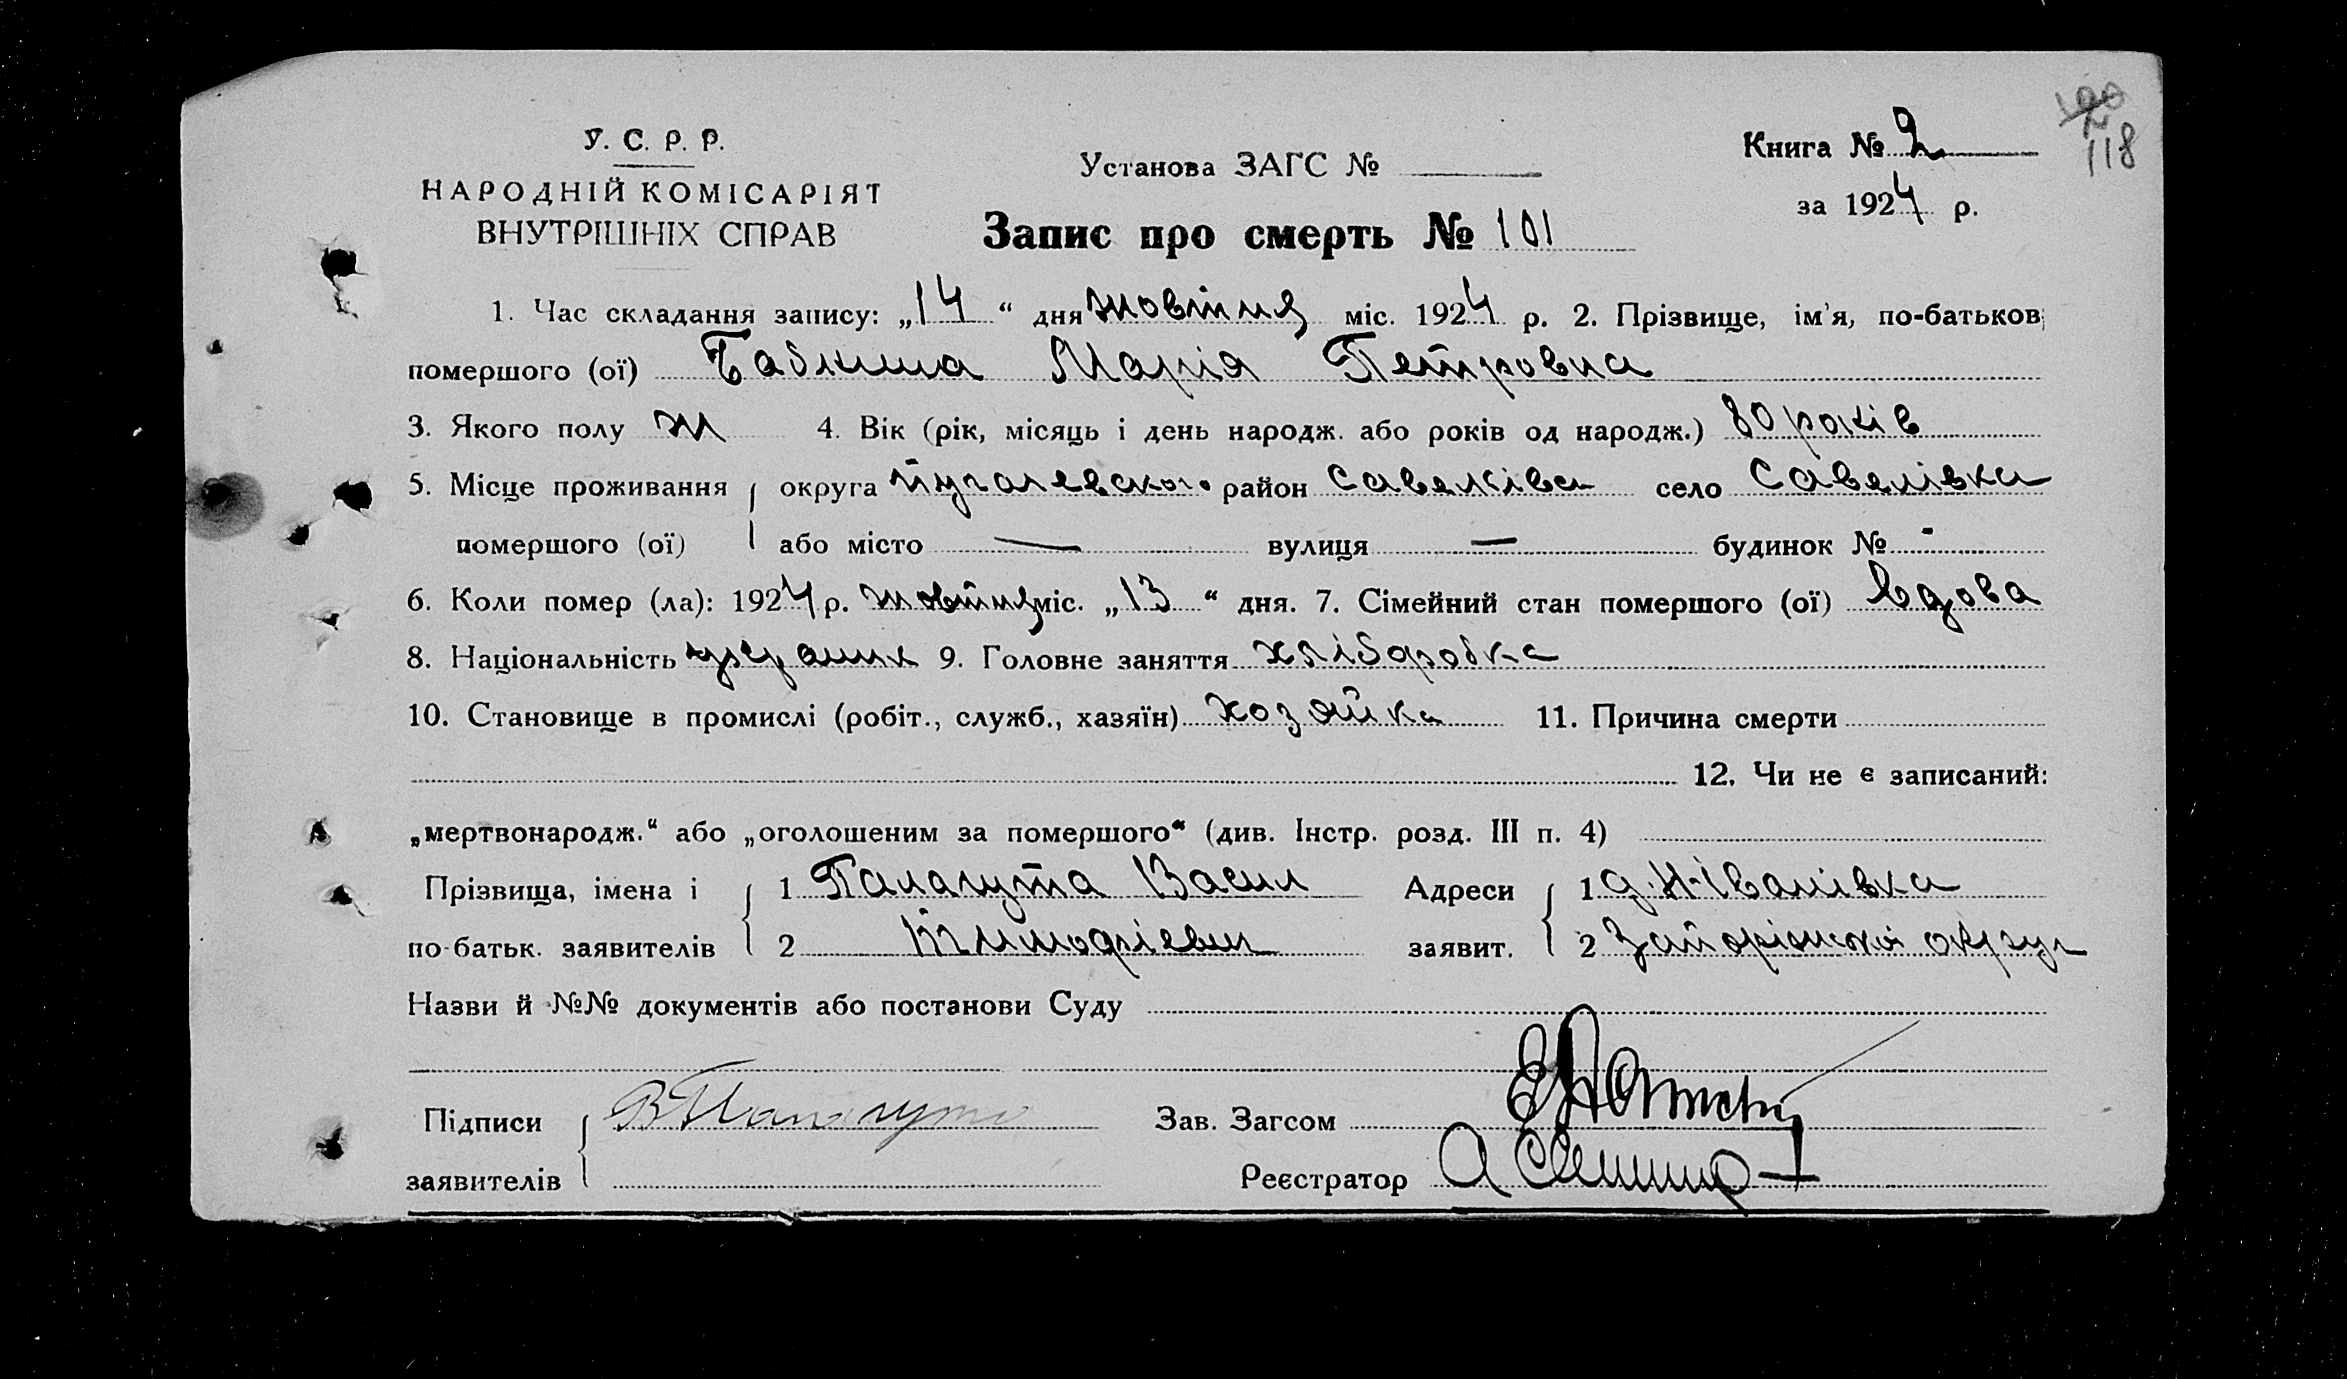 У. С. Р. Р.
НАРОДНІЙ КОМІСАРІЯТ
ВНУТРІШНІХ СПРАВ
Установа ЗАГС №
Книга № 2
118
за 1924 р.
Запис про смерть № 101
1. Час складання запису: „14“ дня жовтня міс. 1924 р. 2. Прізвище, ім'я, по-батькові
помершого (ої) Марія Петровна
3. Якого полу ж 4. Вік (рік, місяць і день народж. або років од народж.) 80 років
5. Місце проживання округа район село Савелівка
помершого (ої) або місто — вулиця — будинок № -
6. Коли помер (ла): 1924 р. жовтня міс. „13“ дня. 7. Сімейний стан помершого (ої) вдова
8. Національність 9. Головне заняття хліборобка
10. Становище в промислі (робіт., служб., хазяїн) хозяйка 11. Причина смерти
12. Чи не є записаний:
„мертвонародж.“ або „оголошеним за помершого“ (див. Інстр. розд. III п. 4)
Прізвища, імена і 1 Палагута Васил Адреси 1 д. Н-Іванівка
по-батьк. заявителів 2 заявит. 2
Назви й №№ документів або постанови Суду
Підписи В Палагута Зав. Загсом
заявителів Реєстратор